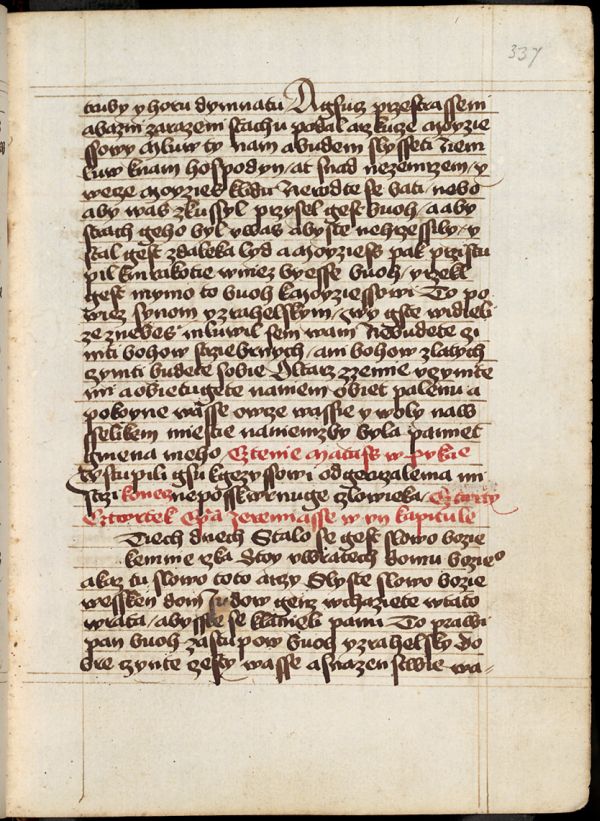 337
truby y horu dymnatu A gsucz przestrasseni
a bazni zarazeni strachu podal arzkucze Moyzie
ssowy Mluw ty nam a budem slysseti Nem
luw knam hospodyn / at snad nezemrzem / y
wecze Moyzies klidu Nerodte se bati nebo
aby was zkussyl przyssel gest buoh / a aby
strach geho byl vwas abyste nehrzessily / y
stal gest zdaleka lyd a Moyziess pak przistu
pil k mrakotie wniez byesse buoh / y rzekl
gest mymo to buoh k Moyziessowi To po
wiez synom yzrahelskym / wy gste widieli
ze znebes mluwil sem wam Nebudete czi
niti bohow strziebrnych / ani bohow zlatych
czyniti budete sobie Oltarz zzemie vczynite
mi a obietugete naniem obiet palenu a
pokoyne wasse owcze wassie y woly naw
sselikem miestie naniemzby byla pamiet
gmena meho Cztenie Matuss w xv kap
Wystupili gsu k gezyssowi od geruzalema mi
strzi konecz neposskwrnuge czlowieka / Cztwrty
Cztwrtek Epla Jeremiasse w vii kapitule
Tiech dnech Stalo se gest slowo bozie
kemnie rzka Stoy vwratech domu bozieo
a kaz tu slowo toto a rzy Slyste slowo bozie
wessken dom Judow genz wchaziete wtato
wrata / abysste se klanieli panu To prawi
pan buoh zastupow buoh yzrahelsky Do
bre czynte czesty wasse a snazenstwie wa-